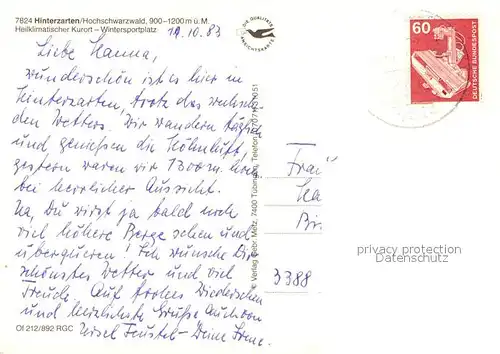 7824 Hinterzarten/Hochschwarzwald, 900-1200 m ü. M.
Heilklimatischer Kurort – Wintersportplatz
DIE QUALITÄTS
ANSICHTSKARTE
11.10.83
60
DEUTSCHE BUNDESPOST
Liebe Hanna,
wunderschön ist es hier in
Hinterzarten, trotz des wechseln
den Wetters. Wir wandern täglich
und genießen die Höhenluft,
gestern waren wir 1300 m hoch
bei herrlicher Aussicht.
Na, Du wirst ja bald noch
viel höhere Berge sehen und
überqueren! Ich wünsche Dir
schönstes Wetter und viel
Freude. Auf frohes Wiedersehen
und herzlichste Grüße Auch von
Ursel Feustel - Deine Irene.
© Verlag Gebr. Metz, 7400 Tübingen, Telefon
Frau
Ha
Br
3388
privacy protection
Datenschutz
Of 212/892 RGC